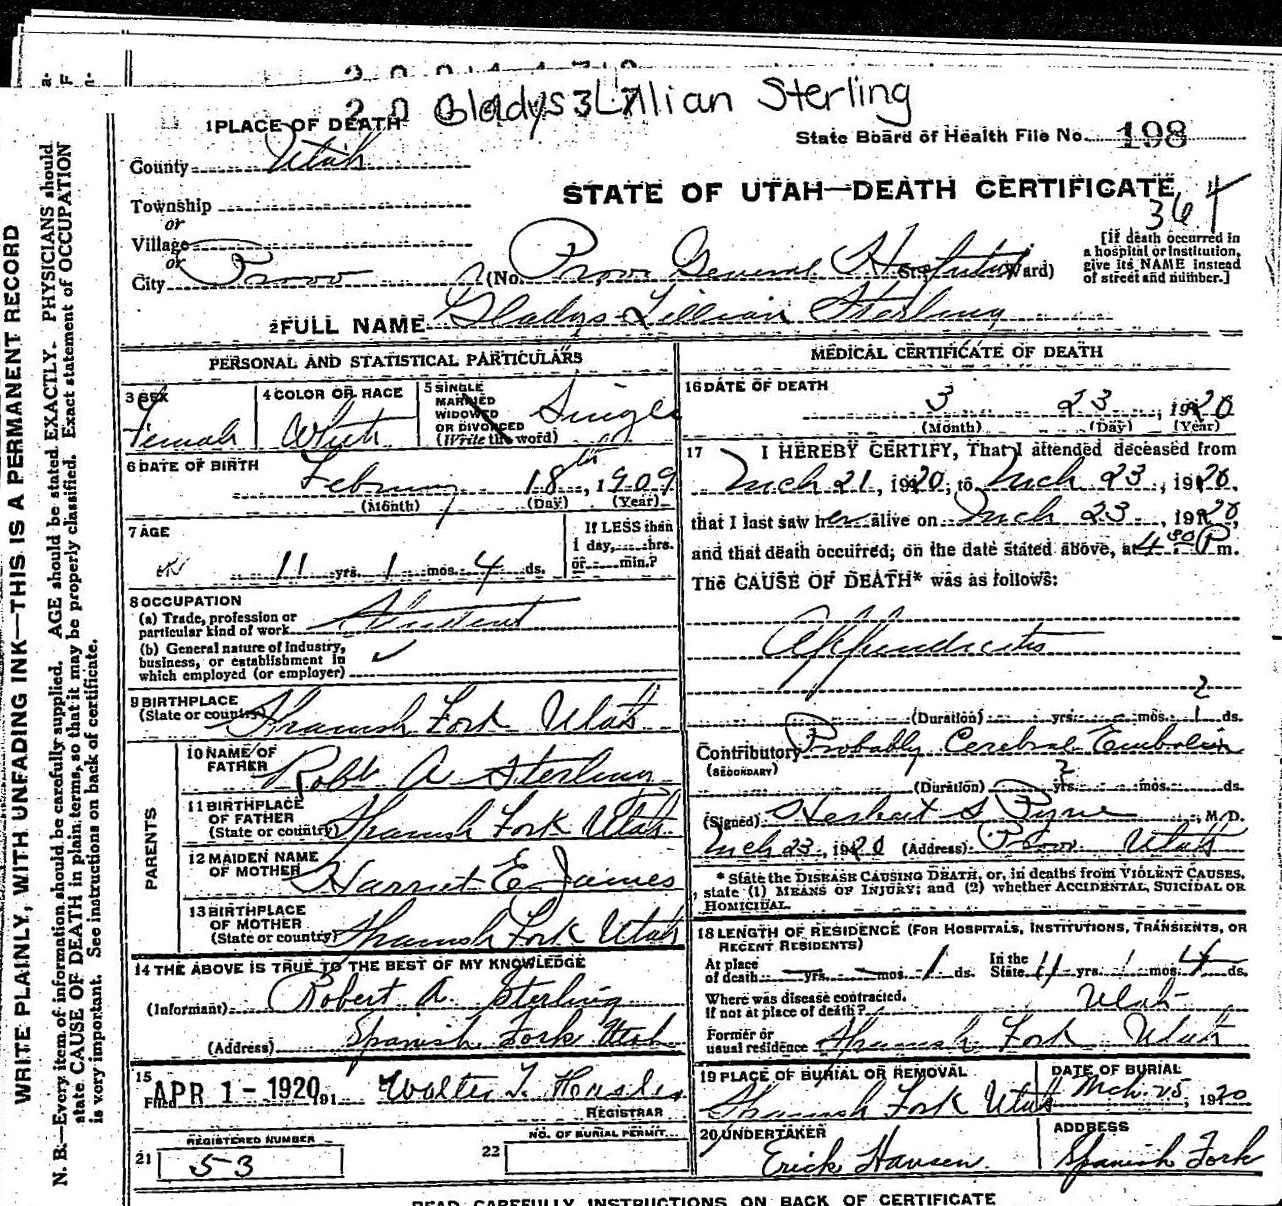 Gladys Lillian Sterling
1 PLACE OF DEATH
State Board of Health File No. 198
County Utah
STATE OF UTAH—DEATH CERTIFICATE
364
Township
or
Village
or
City Provo (No. Provo General Hospital St. Ward)
[If death occurred in
a hospital or institution,
give its NAME instead
of street and number.]
2 FULL NAME Gladys Lillian Sterling
PERSONAL AND STATISTICAL PARTICULARS
3 SEX
Female
4 COLOR OR RACE
White
5 SINGLE
MARRIED
WIDOWED
OR DIVORCED
(Write the word)
Single
6 DATE OF BIRTH
February 18th, 1909
(Month) (Day) (Year)
7 AGE
11 yrs. 1 mos. 4 ds.
If LESS than
1 day, hrs.
or min.?
8 OCCUPATION
(a) Trade, profession or
particular kind of work Student
(b) General nature of Industry,
business, or establishment in
which employed (or employer)
9 BIRTHPLACE
(State or country) Spanish Fork Utah
PARENTS
10 NAME OF
FATHER Robt A Sterling
11 BIRTHPLACE
OF FATHER
(State or country) Spanish Fork Utah
12 MAIDEN NAME
OF MOTHER Harriet E James
13 BIRTHPLACE
OF MOTHER
(State or country) Spanish Fork Utah
14 THE ABOVE IS TRUE TO THE BEST OF MY KNOWLEDGE
(Informant) Robert A. Sterling
(Address) Spanish Fork Utah
15
Filed APR 1 - 1920 191 Walter T. Hasler
REGISTRAR
REGISTERED NUMBER
21 53
NO. OF BURIAL PERMIT
22
MEDICAL CERTIFICATE OF DEATH
16 DATE OF DEATH
3 23, 1920
(Month) (Day) (Year)
17 I HEREBY CERTIFY, That I attended deceased from
Mch 21, 1920, to Mch 23, 1920,
that I last saw her alive on Mch 23, 1920,
and that death occurred, on the date stated above, at 4:30 P m.
The CAUSE OF DEATH* was as follows:
Appendicitis
2
(Duration) yrs. mos. 1 ds.
Contributory Probably Cerebral Embolism
(SECONDARY)
?
(Duration) yrs. mos. ds.
(Signed) Herbert S Pyne, M.D.
Mch 23, 1920 (Address) Provo Utah
* State the DISEASE CAUSING DEATH, or, in deaths from VIOLENT CAUSES,
state (1) MEANS OF INJURY; and (2) whether ACCIDENTAL, SUICIDAL OR
HOMICIDAL.
18 LENGTH OF RESIDENCE (FOR HOSPITALS, INSTITUTIONS, TRANSIENTS, OR
RECENT RESIDENTS)
At place
of death yrs. mos. 1 ds. In the
State 11 yrs. 1 mos. 4 ds.
Where was disease contracted,
if not at place of death? Utah
Former or
usual residence Spanish Fork Utah
19 PLACE OF BURIAL OR REMOVAL
Spanish Fork Utah
DATE OF BURIAL
Mch. 25, 1920
20 UNDERTAKER
Erick Hansen
ADDRESS
Spanish Fork
READ CAREFULLY INSTRUCTIONS ON BACK OF CERTIFICATE
WRITE PLAINLY, WITH UNFADING INK—THIS IS A PERMANENT RECORD
N. B.—Every item of information should be carefully supplied. AGE should be stated EXACTLY. PHYSICIANS should
state CAUSE OF DEATH in plain terms, so that it may be properly classified. Exact statement of OCCUPATION
is very important. See instructions on back of certificate.